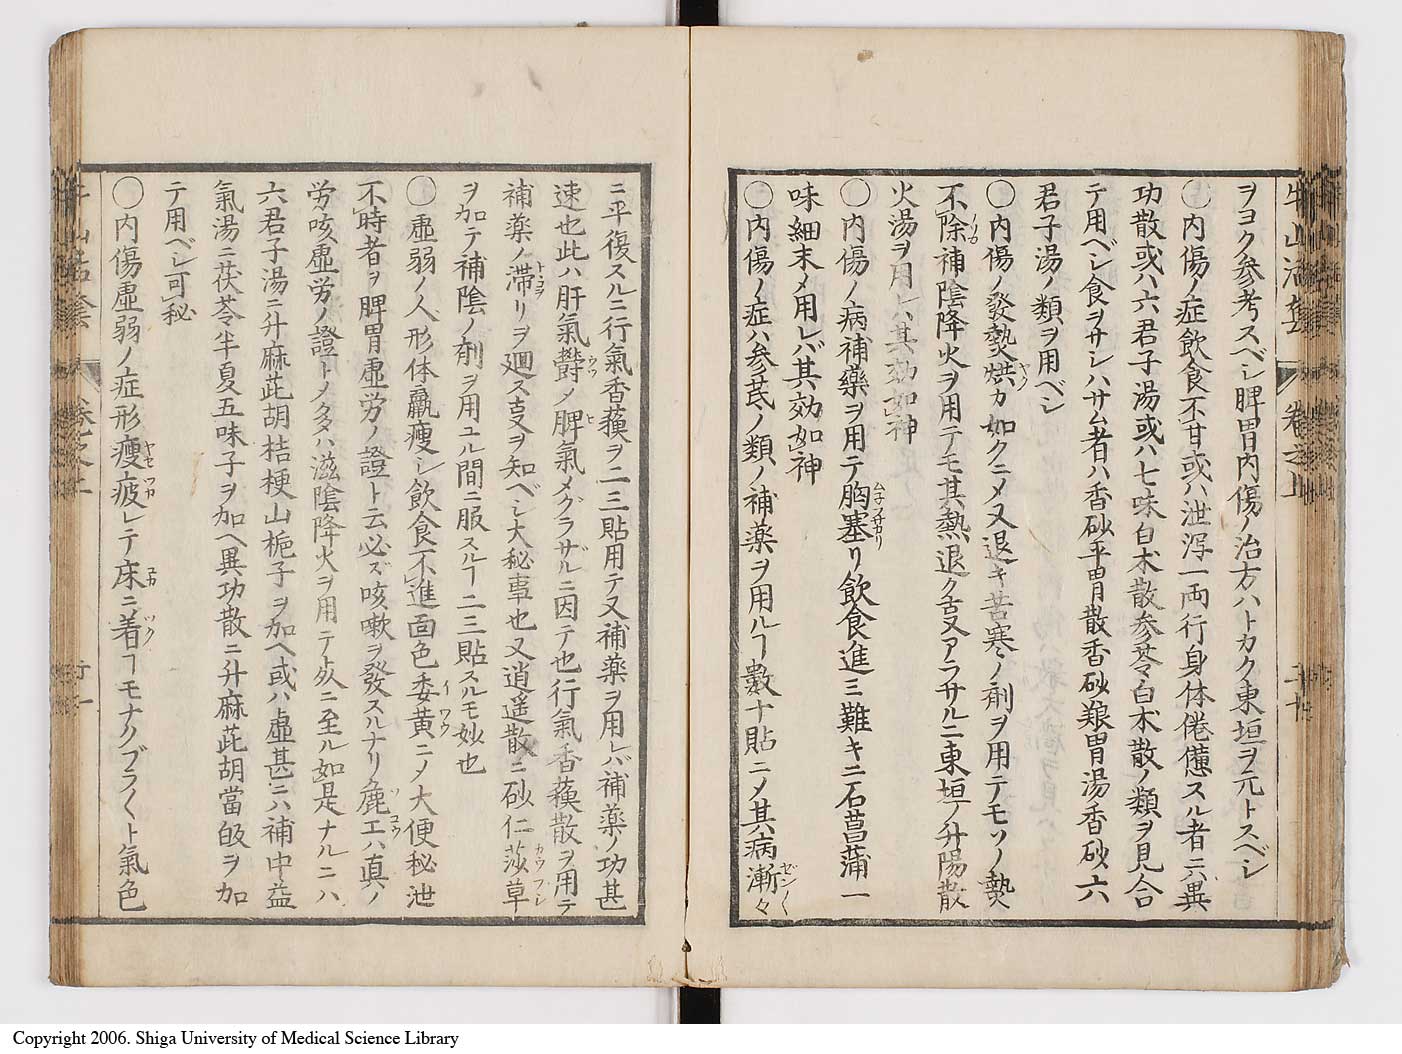 牛山活套 卷之上 二十
ヲヨク参考スベシ脾胃内傷ノ治方ハトカク東垣ヲ元トスベシ
○内傷ノ症飲食不甘或ハ泄瀉一両行身体倦憊スル者ニハ異
功散或ハ六君子湯或ハ七味白木散参苓白木散ノ類ヲ見合
テ用ベシ食ヲサシハサム者ハ香砂平胃散香砂養胃湯香砂六
君子湯ノ類ヲ用ベシ
○内傷ノ發熱烘カ如クニメ又退キ苦寒ノ剤ヲ用テモソノ熱
不除補陰降火ヲ用テモ其熱退ク叓アラサルニ東垣ノ升陽散
火湯ヲ用レハ其効如神
○内傷ノ病補藥ヲ用テ胸塞リ飲食進ミ難キニ石菖蒲一
味細末メ用レバ其効如神
○内傷ノ症ハ参芪ノ類ノ補薬ヲ用ルヿ數十貼ニメ其病漸々
ニ平復スルニ行氣香蘓ヲ二三貼用テ又補薬ヲ用レバ補薬ノ功甚
速也此ハ肝氣欝メ脾氣メグラザルニ因テ也行氣香蘓散ヲ用テ
補薬ノ滞リヲ廻ス叓ヲ知ベシ大秘事也又逍遥散ニ砂仁莎草
ヲ加テ補陰ノ剤ヲ用ユル間ニ服スルヿ二三貼スルモ妙也
○虚弱ノ人形体羸痩シ飲食不進面色委黄ニメ大便秘泄
不時者ヲ脾胃虚労ノ證ト云必ズ咳嗽ヲ發スルナリ麁工ハ真ノ
労咳虚労ノ證トメ多ハ滋陰降火ヲ用テ死ニ至ル如是ナルニハ
六君子湯ニ升麻茈胡桔梗山梔子ヲ加ヘ或ハ虚甚ニハ補中益
氣湯ニ茯苓半夏五味子ヲ加ヘ異功散ニ升麻茈胡當皈ヲ加
テ用ベシ可秘
○内傷虚弱ノ症形痩疲レテ床ニ着ヿモナクブラ〱ト氣色
Copyright 2006. Shiga University of Medical Science Library